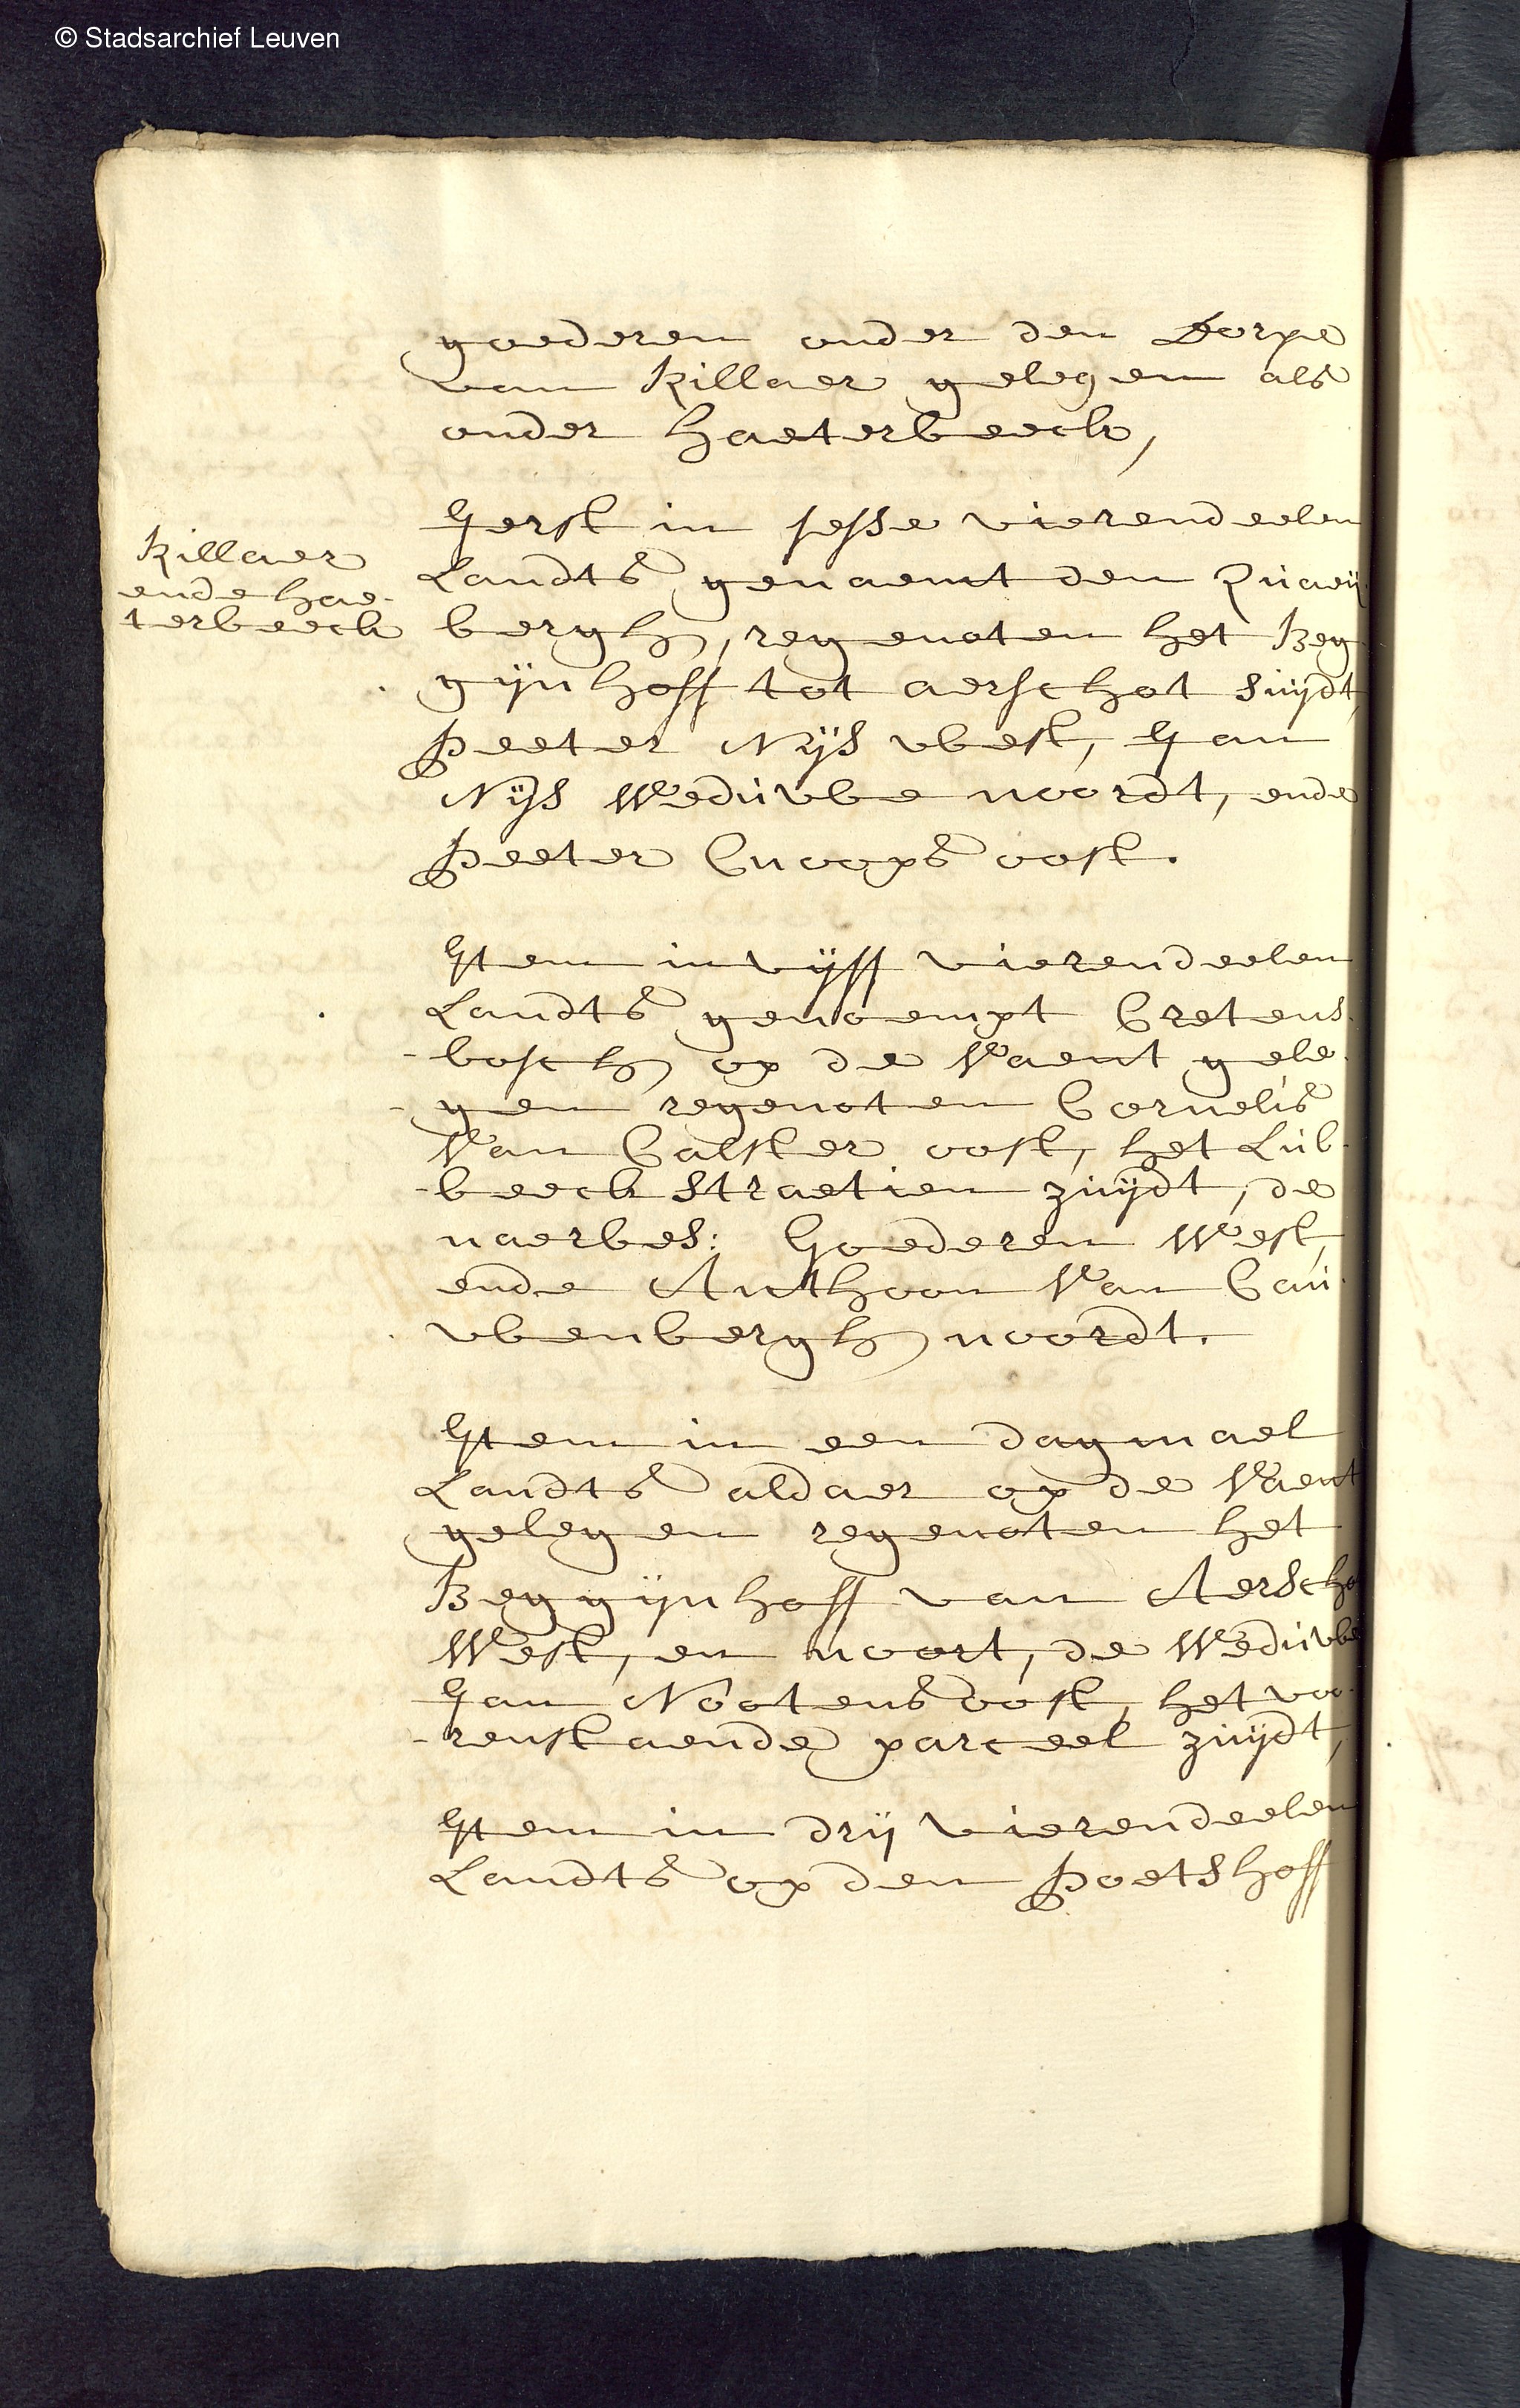 © Stadsarchief Leuven
goederen onder den Dorpe
van Killaer gelegen als
onder haeterbeeck,
Killaer
ende hae-
terbeeck
Ierst in sesse vierendeelen
Landts genaemt den Quaey
bergh, regenoten het Beg
gijnhoff tot aerschot suijdt,
Peeter Nijs west, Jan
Nijs Weduwe noordt, ende
Peeter Cnoops oost.
Item in vijff vierendeelen
Landts genoempt Cretens
-bosch op de Vaent gele
-gen regenoten Cornelis
Van Calster oost, het Lub
-beeck straetien zuijdt, de
naerbes: Goederen West,
ende Anthoon Van Cau
wenbergh noordt.
Item in een daghmael
Landts aldaer op de Vaent
gelegen regenoten het
Beggijnhoff van Aerscho
West, en noort, de Weduwe
Jan Nootens oost, het voo
-renstaende parceel zuijdt,
Item in drij vierendeelen
Landts op den Poetshoff